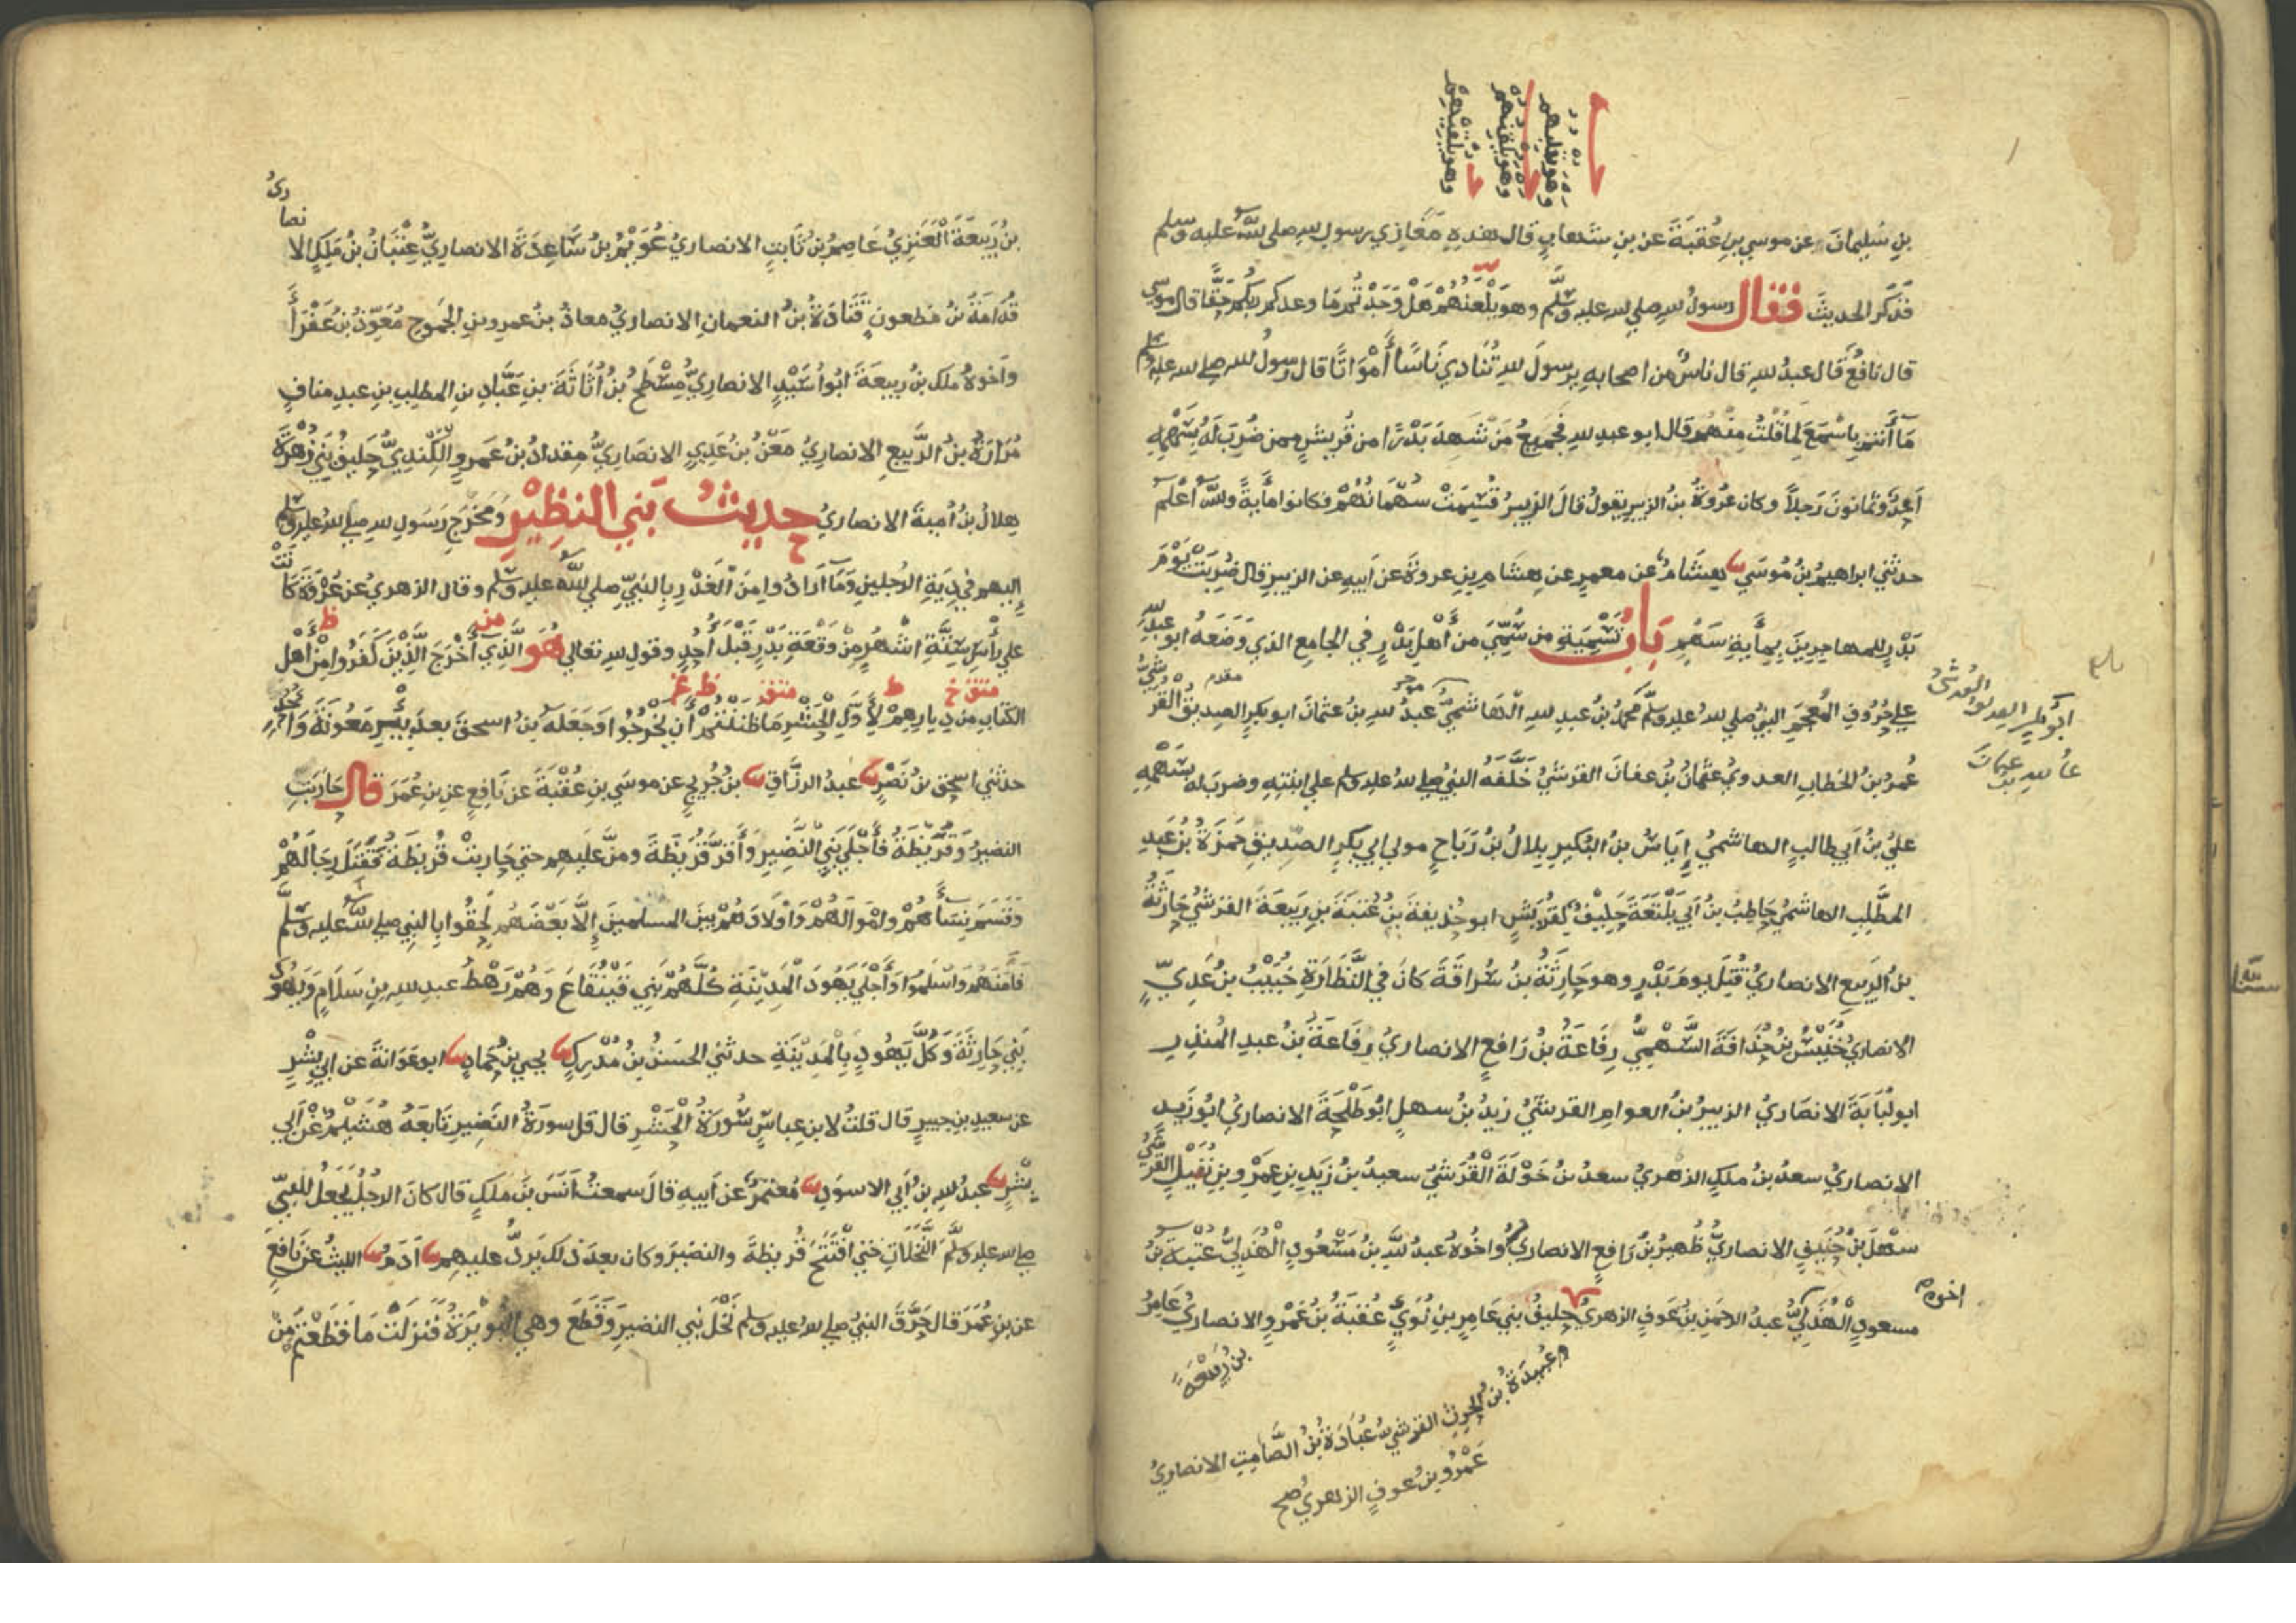 وهو يلقيهم
وهو يلقنهم
وهو يلعنهم
بن سُلَيمانَ عن موسي بنِ عُقبَةَ عن بن شهابٍ قال هذهِ مَغَازِي رسول لله صلى لله عليه وسلم
فَذكَر الحديثَ فقال رسولُ لله صلى لله عليه وسلَّم وهو يَلْعَنُهُمْ هَلْ وَجَدْتُم مَا وعدكم ربُّكم حَقًّا قال موسي
قال نافعٌ قَال عبدُ لله قال ناسٌ من اصحابهِ يرسولَ لله تُنَادِي نَاسًا أَمْوَاتًا قال رسولُ لله صلى لله عليه وسلم
مَا أَنتم بِاسْمَعَ لِمَا قُلْتُ مِنْهُم قال ابو عبدِ لله فجميعُ مَنْ شَهِدَ بَدْرًا من قُريشٍ ممن ضُرِبَ لَهُ بِسَهْمِهِ
أحدٌ وثمانونَ رَجلاً وكان عُروَةُ بنُ الزبيرِ يقولُ قالَ الزبيرُ قُسِمَتْ سُهْمَانُهُمْ فكانوا مأيةً ولله أعْلم
حدثني ابراهيمُ بنُ مُوسَي هِشَامٌ عن معمرٍ عن هِشَامِ بنِ عروةَ عن أبيهِ عن الزبيرِ قال ضُرِبَتْ يَوْمَ
بَدْرٍ للمهاجرينَ بِمأيةِ سَهْمٍ بَابُ تَسْمِيَةِ من سُمِّيَ من أَهْلِ بَدْرٍ في الجامعِ الذي وَضَعَهُ ابو عبدِ لله
علي حُرُوفِ المُعْجَمِ النبيُّ صلي لله عليه وسلَّم محمدُ بنُ عبدِ لله الهَاشميُّ عبدُ لله بنُ عثمانَ ابو بكرٍ الصديقُ القُرَشيُّ
موخر
مقدم
ابو بكرٍ الصديقُ القُرشيُّ
عبدُ لله بنُ عثمانَ
عُمرُ بنُ الخطابِ العدويُّ عثمانُ بنُ عفانَ القرشيُّ خَلَّفَهُ النبيُّ صلي لله عليه وسلم علي ابنتِهِ وضربَ له بِسَهْمِهِ
عليُّ بنُ أبي طالبٍ الهاشميُّ إِيَاسُ بنُ البُكيرِ بِلالُ بنُ رَبَاحٍ مولي ابي بكرٍ الصّديقِ حَمزَةُ بنُ عَبْدِ
المُطَّلِبِ الهاشميُّ حَاطِبُ بنُ أَبي بَلْتَعَةَ حَلِيفٌ لِقُرَيشٍ ابو حُذيفةَ بنُ عُتبَةَ بنِ رَبيعَةَ القرشيُّ حَارِثَةُ
بنُ الرَّبيعِ الانصاريُّ قُتِلَ يومَ بَدْرٍ وهو حَارِثَةُ بنُ سُرَاقَةَ كانَ في النَّظَّارَةِ خُبَيْبُ بنُ عَدِيٍّ
الانصاريُّ خُنَيْسُ بنُ حُذَافَةَ السَّهْمِيُّ رِفَاعَةُ بنُ رَافِعٍ الانصاريُّ رِفَاعَةُ بنُ عبدِ المُنذِرِ
ابو لُبَابَةَ الانصَاريُّ الزبيرُ بنُ العوامِ القرشيُّ زيدُ بنُ سهلٍ ابُو طَلْحَةَ الانصاريُّ ابُو زَيدٍ
الانصاريُّ سعدُ بنُ ملكٍ الزهريُّ سعدُ بنُ خَوْلَةَ القُرَشيُّ سعيدُ بنُ زَيدِ بنِ عمْرِو بنِ نُفَيْلٍ القُرَشيُّ
سَهْلُ بنُ حُنيفٍ الانصاريُّ ظُهَيرُ بنُ رَافعٍ الانصاريُّ واخُوهُ عبدُ للهِ بنُ مَسْعُودٍ الْهُذَلِيُّ عُتْبَةُ بنُ
اخوه
مسعودٍ الْهُذَلِيُّ عبدُ الرحمنِ بنُ عَوفٍ الزهريُّ حليفُ بني عَامِرِ بنِ لُؤيٍّ عُقبَةُ بنُ عَمْرٍو الانصاريُّ عَامِرُ
بنُ رَبِيْعَةَ
عُبيدَةُ بنُ الحرثِ القرشيُّ عُبَادَةُ بنُ الصَّامِتِ الانصاريُّ
عَمْرُو بنُ عوفٍ الزهريُّ صح
بنُ رَبِيعَةَ الْعَنَزِيُّ عَاصِمُ بنُ ثَابتٍ الانصاريُّ عُوَيْمُ بنُ سَاعِدَةَ الانصاريُّ عِتْبَانُ بنُ مَلِكٍ الا
نصا
ريُّ
قُدَامَةُ بنُ مَظعونٍ قَتَادَةُ بنُ النعمانِ الانصاريُّ معاذُ بنُ عمرِو بنِ الجَموحِ مُعَوِّذُ بنُ عَفْرَأَ
واخوهُ ملك بنُ ربيعَةَ ابُو أُسَيْدٍ الانصاريُّ مِسْطَحُ بنُ أُثَاثَةَ بنِ عَبَّادِ بنِ المطلِبِ بنِ عبدِ منافٍ
مُرَارَةُ بنُ الرَّبيعِ الانصاريُّ مَعْنُ بنُ عَدِيٍ الانصَاريُّ مِقدادُ بنُ عَمرٍو الكِنْدِيُّ حَلِيفُ بَنِي زُهْرَةَ
هِلالُ بنُ أُميةَ الانصاريُّ حديثُ بَنِي النظِيْرِ وَمَخْرَجِ رَسَولِ لله صلي لله عليه وسلم
إليهم في دِيَةِ الرَّجلينِ وَمَا أَرَادُوا مِنَ الْغَدْرِ بِالنبيِّ صلي لله عليه وسلم وقال الزهريُّ عن عُرْوَةَ كَا
نَتْ
علي رأْسِ سِتَّةِ اشْهُرٍ مِنْ وَقْعَةِ بَدْرٍ قَبْلَ أُحُدٍ وقولِ لله تعالي هُوَ الَّذِي أَخْرَجَ الَّذِيْنَ كَفَرُوا مِنْ أَهْلِ
الكِتَابِ مِن دِيارِهِمْ لِأَوَّلِ الْحَشْرِ مَا ظَنَنْتُمْ أَن يَخْرُجُوا وَجَعَلَهُ بنُ اسحقَ بعدَ بِئْرِ مَعُونَةَ وَأُحُدٍ
حدثني اسحق بنُ نَصْرٍ عبدُ الرزَّاقِ بنُ جُريجٍ عن موسَي بنِ عُقْبَةَ عن نَافِعٍ عن بنِ عُمَرَ قال حَارَبَتِ
النضيرُ وَقُرَيْظَةُ فَأَجْلَي بَنِي النَّضِيرِ وَأَقَرَّ قُرَيظَةَ ومنَّ عليهم حتي حَاربتْ قُريظَةُ فَقَتَلَ رِجَالَهُمْ
وَقَسَمَ نِسَأَهُمْ وامْوَالَهُمْ وَأَوْلَادَهُمْ بَينَ المسلمينَ إِلَّا بَعْضَهُم لَحِقُوا بِالنبي صلي لله عليه وسلَّم
فَأمنَهُم وَاسْلَمُوا وَأَجْلَي يَهُودَ الْمَدِيْنَةِ كُلَّهُمْ بَنِي قَيْنُقَاعَ وَهُمْ رَهْطُ عبدِ لله بنِ سَلَامٍ وَيَهُودَ
بَنِي حَارِثَةَ وَكُلَّ يَهُودٍ بِالْمَدِيْنَةِ حدثني الحسَنُ بنُ مُدْرِكٍ يحيي بنُ حَمادٍ ابو عَوَانةَ عن ابي بِشْرٍ
عن سعيدِ بنِ جبيرٍ قال قلتُ لابنِ عباسٍ سُورَةُ الْحَشْرِ قال قل سورَةُ النَّضِيرِ تَابَعَهُ هُشَيْمٌ عَنْ أَبي
بِشْرٍ عبدُ لله بنُ أبي الاسوَدِ مُعْتَمِرٌ عن أبيهِ قالَ سمعتُ أَنَسَ بنَ ملكٍ قال كانَ الرجُلُ يَجعَلُ للنبيِّ
صلي لله عليه وسلَّم النَّخَلَاتِ حتي افْتَتَحَ قُرَيظةَ والنضيرَ وكان بعدَ ذلك يَرُدُّ عليهم آدَمُ الليثُ عن نَافعٍ
عن بنِ عُمَرَ قال حَرَّقَ النبيُّ صلي لله عليه وسلم نَخْلَ بَنِي النضيرِ وَقَطَعَ وهي البُوَيْرَةُ فَنزلَتْ مَا قَطَعْتم مِنْ